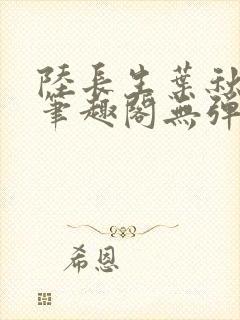 陸長生葉秋
筆趣閣無彈
希恩